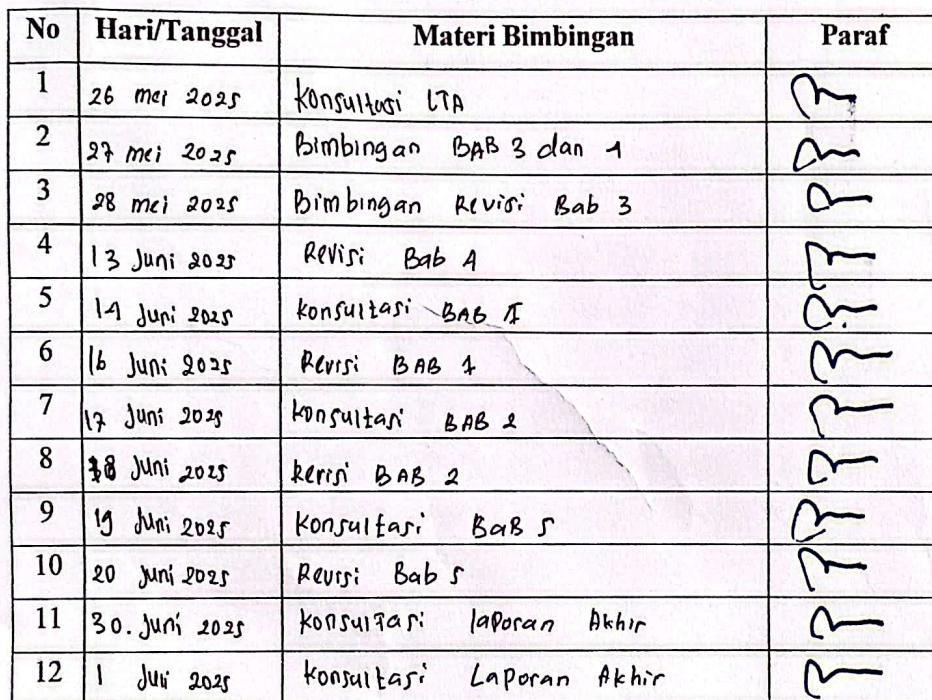 No Hari/Tanggal Materi Bimbingan Paraf
1 26 mei 2025 Konsultasi LTA
2 27 mei 2025 Bimbingan BAB 3 dan 4
3 28 mei 2025 Bimbingan Revisi Bab 3
4 13 Juni 2025 Revisi Bab 4
5 14 Juni 2025 Konsultasi BAB 1
6 16 Juni 2025 Revisi BAB 1
7 17 Juni 2025 Konsultasi BAB 2
8 18 Juni 2025 Revisi BAB 2
9 19 Juni 2025 Konsultasi BaB 5
10 20 Juni 2025 Revisi Bab 5
11 30. Juni 2025 Konsultasi laporan Akhir
12 1 Juli 2025 Konsultasi Laporan Akhir